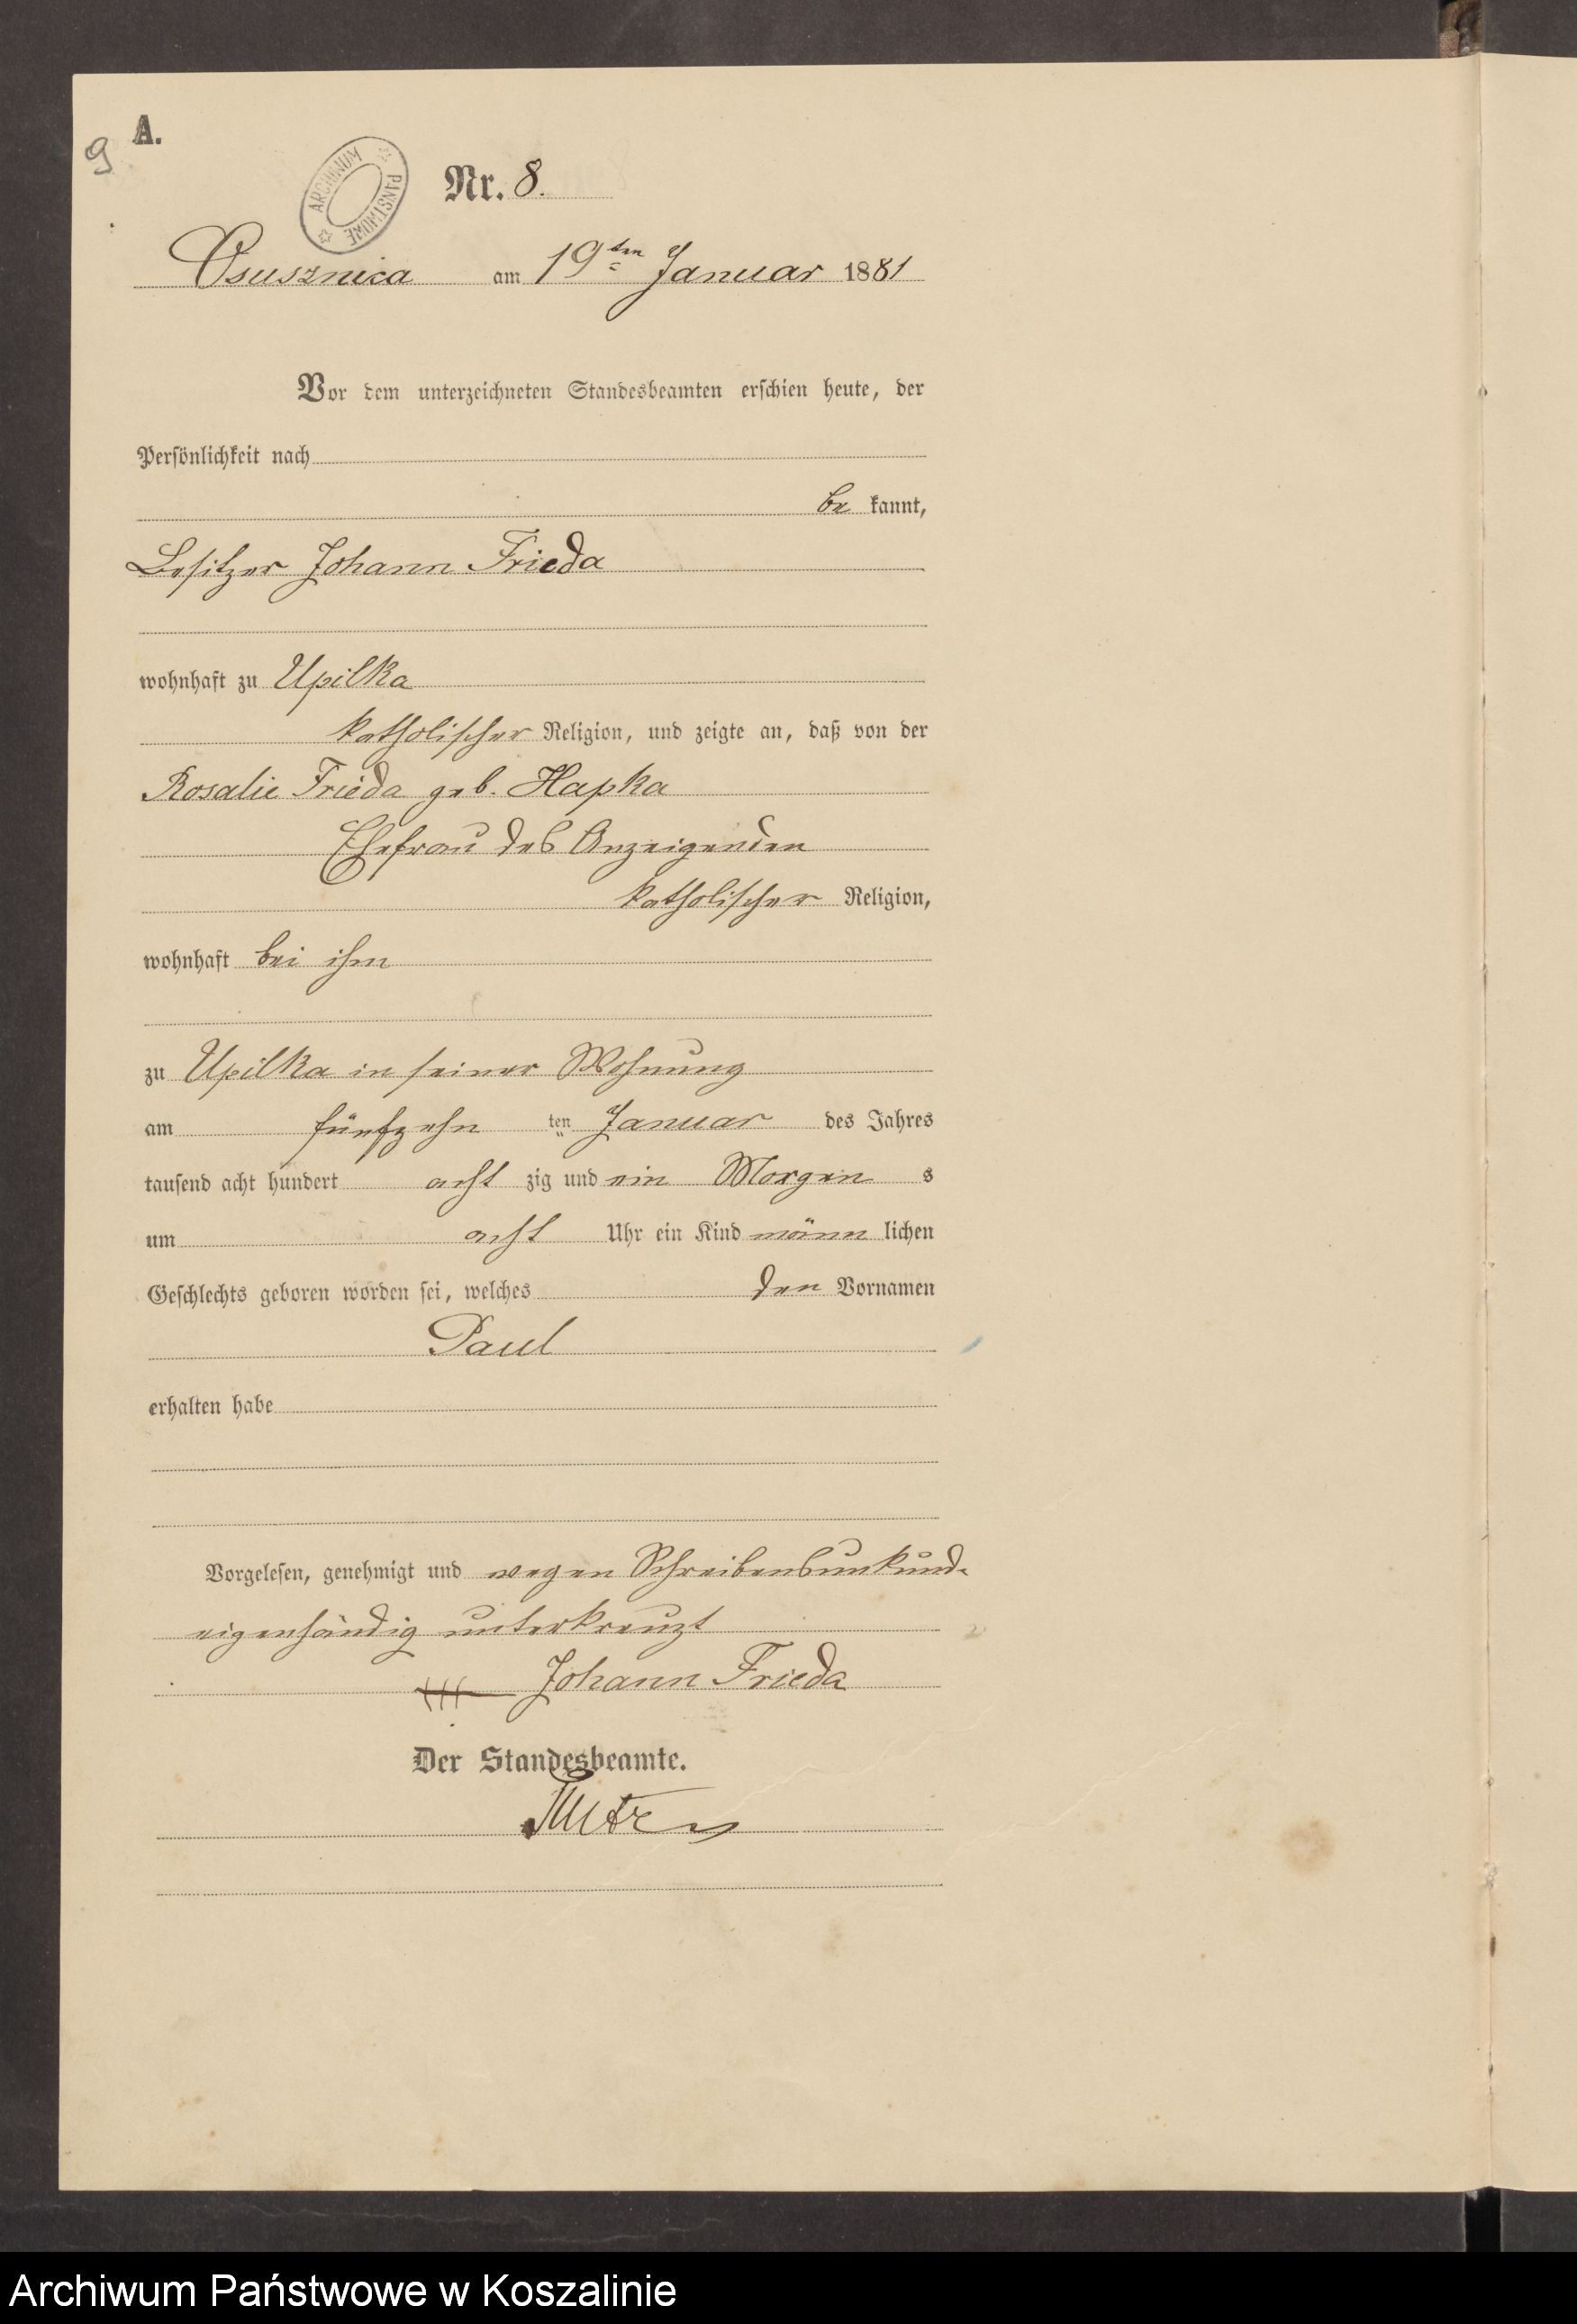 A.
9
ARCHIWUM PAŃSTWOWE
Nr. 8.
Osusznica am 19ten Januar 1881
Vor dem unterzeichneten Standesbeamten erschien heute, der
Persönlichkeit nach
be kannt,
Besitzer Johann Frieda
wohnhaft zu Upilka
katholischer Religion, und zeigte an, daß von der
Rosalie Frieda geb. Hapka
Ehefrau des Anzeigenden
katholischer Religion,
wohnhaft bei ihm
zu Upilka in seiner Wohnung
am fünfzehn ten Januar des Jahres
tausend acht hundert acht zig und ein Morgens
um acht Uhr ein Kind männ lichen
Geschlechts geboren worden sei, welches den Vornamen
Paul
erhalten habe
Vorgelesen, genehmigt und wegen Schreibensunkund.
eigenhändig unterkreuzt
+++ Johann Frieda
Der Standesbeamte.
Archiwum Państwowe w Koszalinie